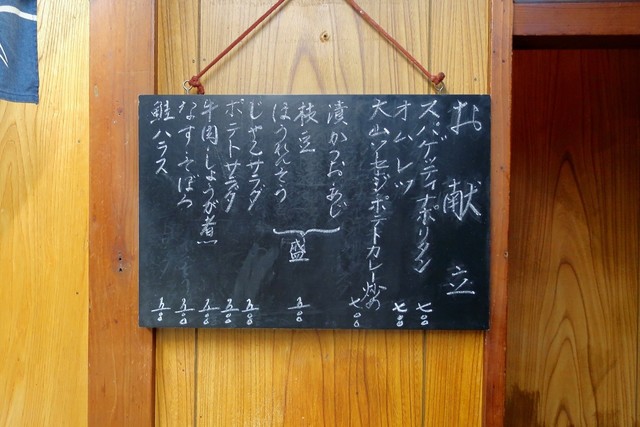 お献立
スパゲッティナポリタン 七〇〇
オムレツ 七〇〇
大山ソーセージポテトカレー炒め 七〇〇
漬かつおあじ
枝豆
ほうれんそう
盛 五〇〇
じゃこサラダ 五〇〇
ポテトサラダ 五〇〇
牛肉しょうが煮 五〇〇
なすそぼろ 五〇〇
鮭ハラス 五〇〇